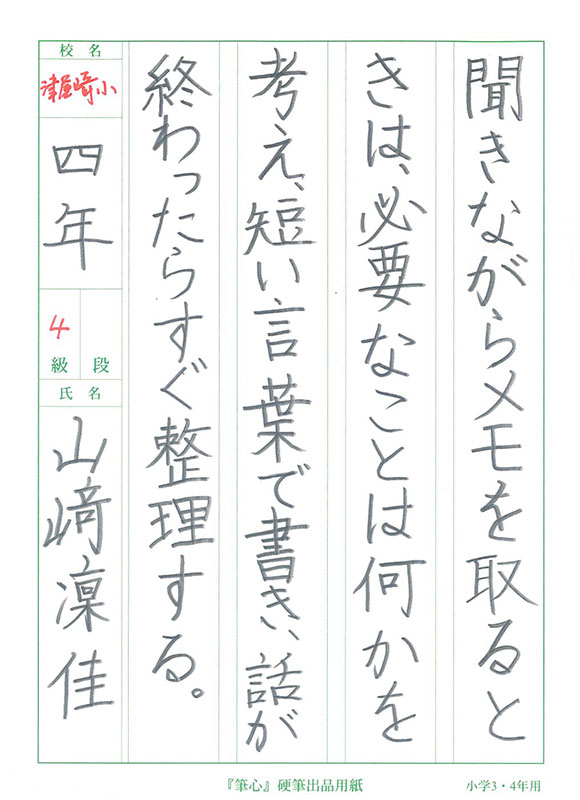 聞きながらメモを取ると
きは、必要なことは何かを
考え、短い言葉で書き、話が
終わったらすぐ整理する。
校名
津屋崎小
四年
4
級 段
氏名
山﨑凜佳
『筆心』硬筆出品用紙
小学3・4年用